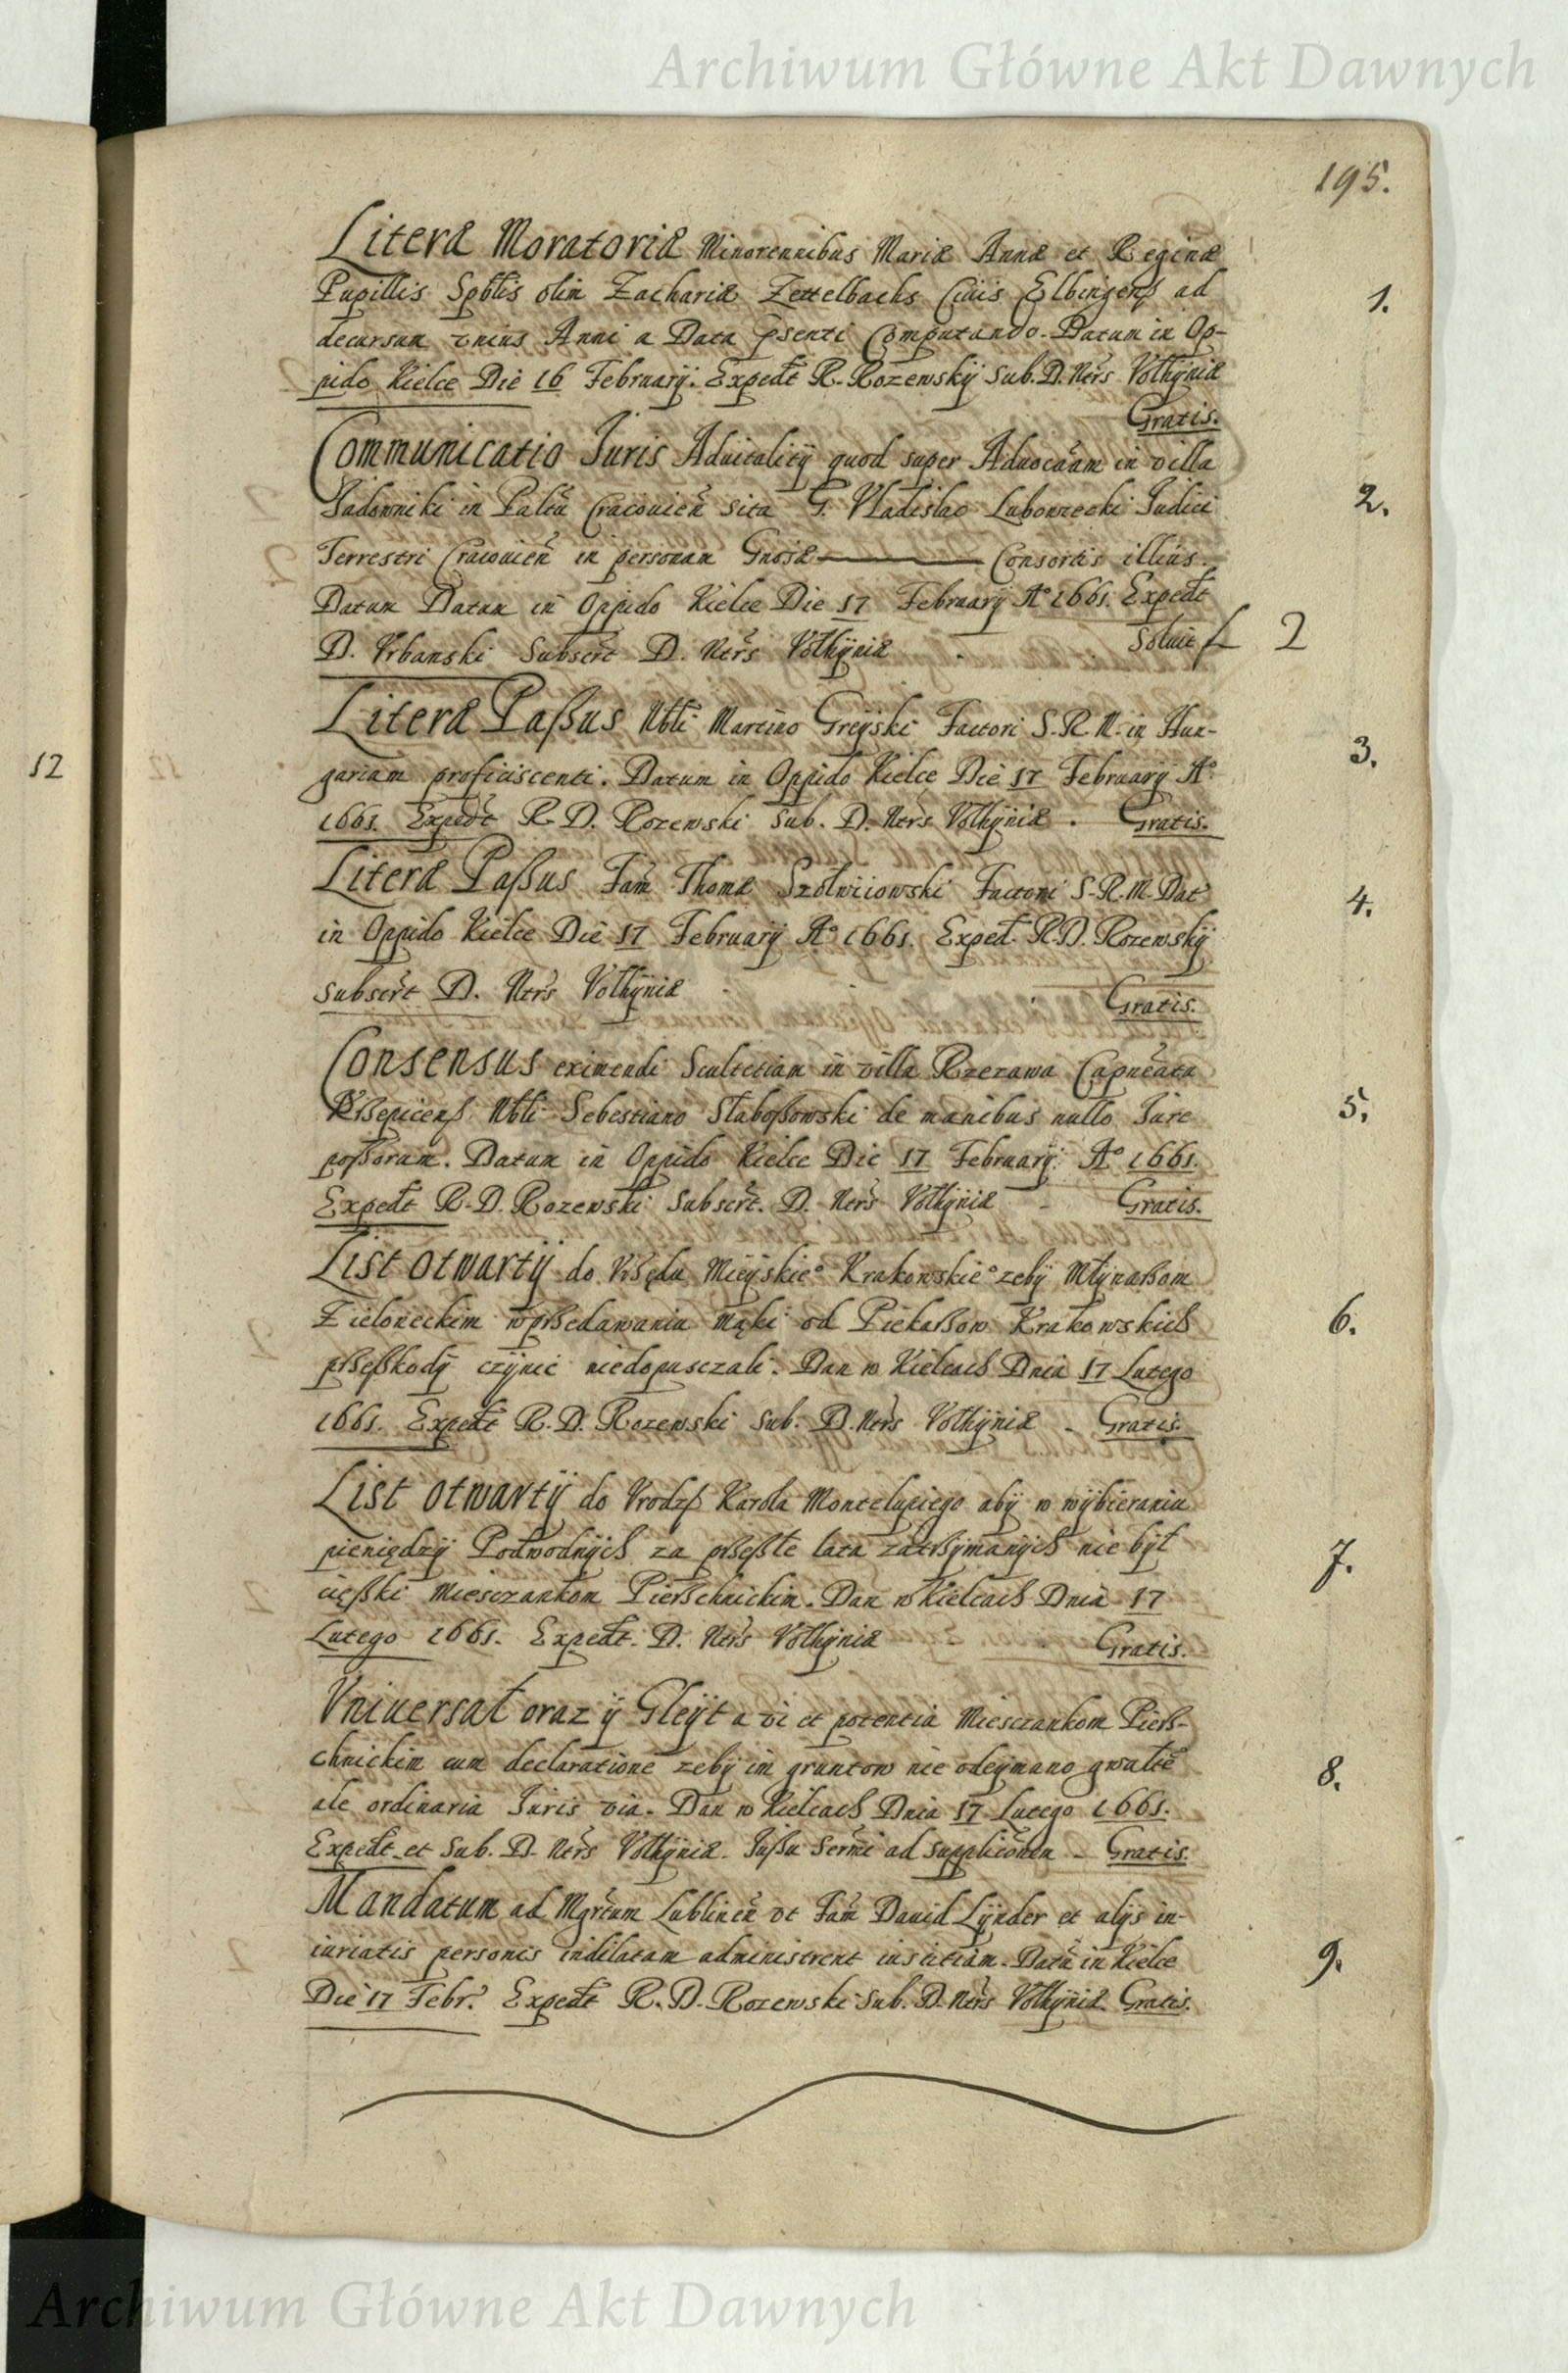 Archiwum Główne Akt Dawnych
195.
Literæ Moratoriæ Minorennibus Mariæ Annæ et Reginæ
Pupillis Spblis olim Zachariæ Zettelbachs Ciuis Elbingenß ad
1.
decursum vnius Anni a Data psenti Computando. Datum in Op-
pido Kielce Die 16 February. Expedt R. Rozewskÿ Sub. D. Ners Volhÿniæ
Gratis.
Communicatio Iuris Aduitalitÿ quod super Aduocãam in villa
Jadowniki in Paltu Cracouien sita G. Vladislao Lubowiecki Iudici
2.
Terrestri Cracouien in personam Gnosæ Consortis illius.
Datum Datum in Oppido Kielce Die 17 Februarÿ A° 1661. Expedt
D. Vrbanski Subscrt D. Ners Volhÿniæ Soluit f 2
Literæ Paßus Nbli Martino Greÿski Factori S.R.M. in Hun-
3.
gariam proficiscenti. Datum in Oppido Kielce Die 17 Februarÿ A°
12
1661. Expedt R.D. Rozewski Sub. D. Ners Volhÿniæ. Gratis.
Literæ Paßus Fam Thomæ Factori S.R.M. Dat
4.
in Oppido Kielce Die 17 Februarÿ A° 1661. Exped. R.D. Rozewskÿ
Subscrt D. Ners Volhÿniæ Gratis.
Consensus eximendi Scultetiam in villa Rzezawa Capneatu
Nbli Sebestiano Słaboßowski de manibus nullo Iure
5.
poßorum. Datum in Oppido Kielce Die 17 Februarÿ A° 1661.
Expedt R.D. Rozewski Subscrt. D. Ners Volhÿniæ - Gratis.
List otwartÿ do Vrßędu Mieÿskie° Krakowskie° zebÿ Młÿnarßom
Zieloneckim wprßedawaniu mąki od Piekarßow Krakowskich
6.
prßeßkodÿ czÿnić niedopusczali. Dan w Kielcach Dnia 17 Lutego
1661. Expedt R.D. Rozewski Sub. D. Ners Volhÿniæ - Gratis.
List otwartÿ do Vrodzß Karola Montelupiego abÿ w wÿbieraniu
pieniędzÿ Podwodnÿch za prßeßłe lata zatrßÿmanÿch nie bÿł
7.
cięßki Miesczankom Pierßchnickim. Dan w Kielcach Dnia 17
Lutego 1661. Expedt. D. Ners Volhÿniæ Gratis.
Vniuersał oraz ÿ Gleÿt a vi et potentia Miesczankom Pierß-
chnickim cum declaratione zebÿ im gruntow nie odeÿmano gwałtē
8.
ale ordinaria Iuris via. Dan w Kielcach Dnia 17 Lutego 1661.
Expedt. et Sub. D. Ners Volhÿniæ. Jußu Sermi ad - Gratis.
Mandatum ad Mgrtum Lublinen vt Fam Dauid Lÿnder et alÿs in-
iuriatis personis indilatam administrent iustitiam. Datū in Kielce
9.
Die 17 Febr. Expedt R.D. Rozewski Sub. D. Ners Volhÿniæ. Gratis.
Archiwum Główne Akt Dawnych